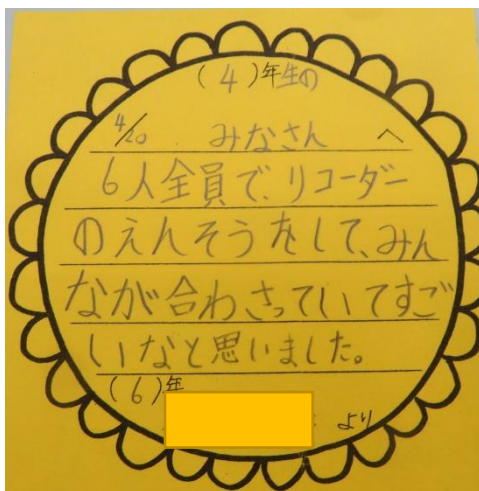 (4)年生の
4/20 みなさん へ
6人全員で、リコーダー
のえんそうをして、みん
なが合わさっていてすご
いなと思いました。
(6)年
より